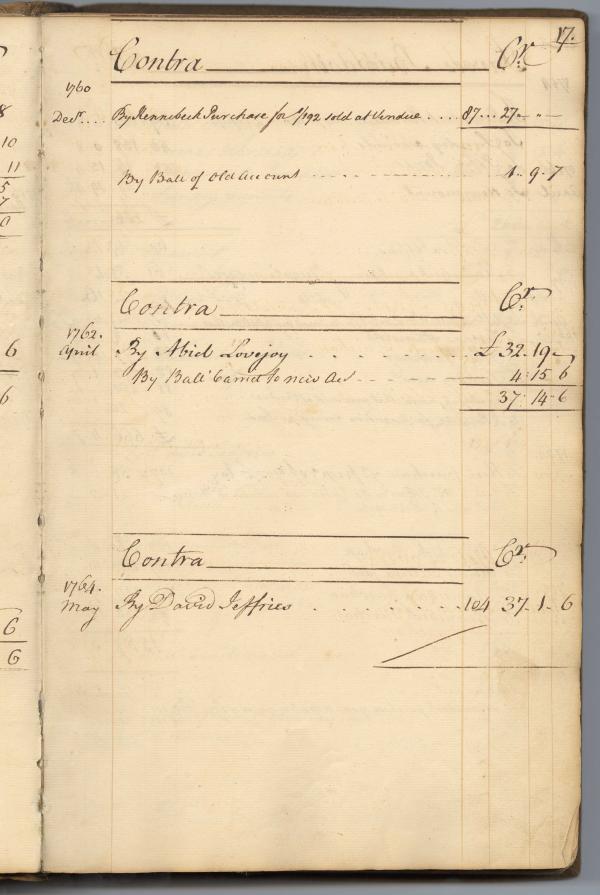 8
10
11
5
7
0
6
6
6
6
17.
Contra Cr.
1760
Decr.... By Kennebeck Purchase for 1/192 sold at Vendue .... 87... 27 - " -
By Ball of Old Account 1 - 9 - 7
Contra Cr.
1762.
April By Abiel Lovejoy £ 32 - 19 -
By Ball Carried to new Acct 4 : 15 6
37 : 14 - 6
Contra Cr.
1764.
May By David Jeffries 104 37 - 1 - 6